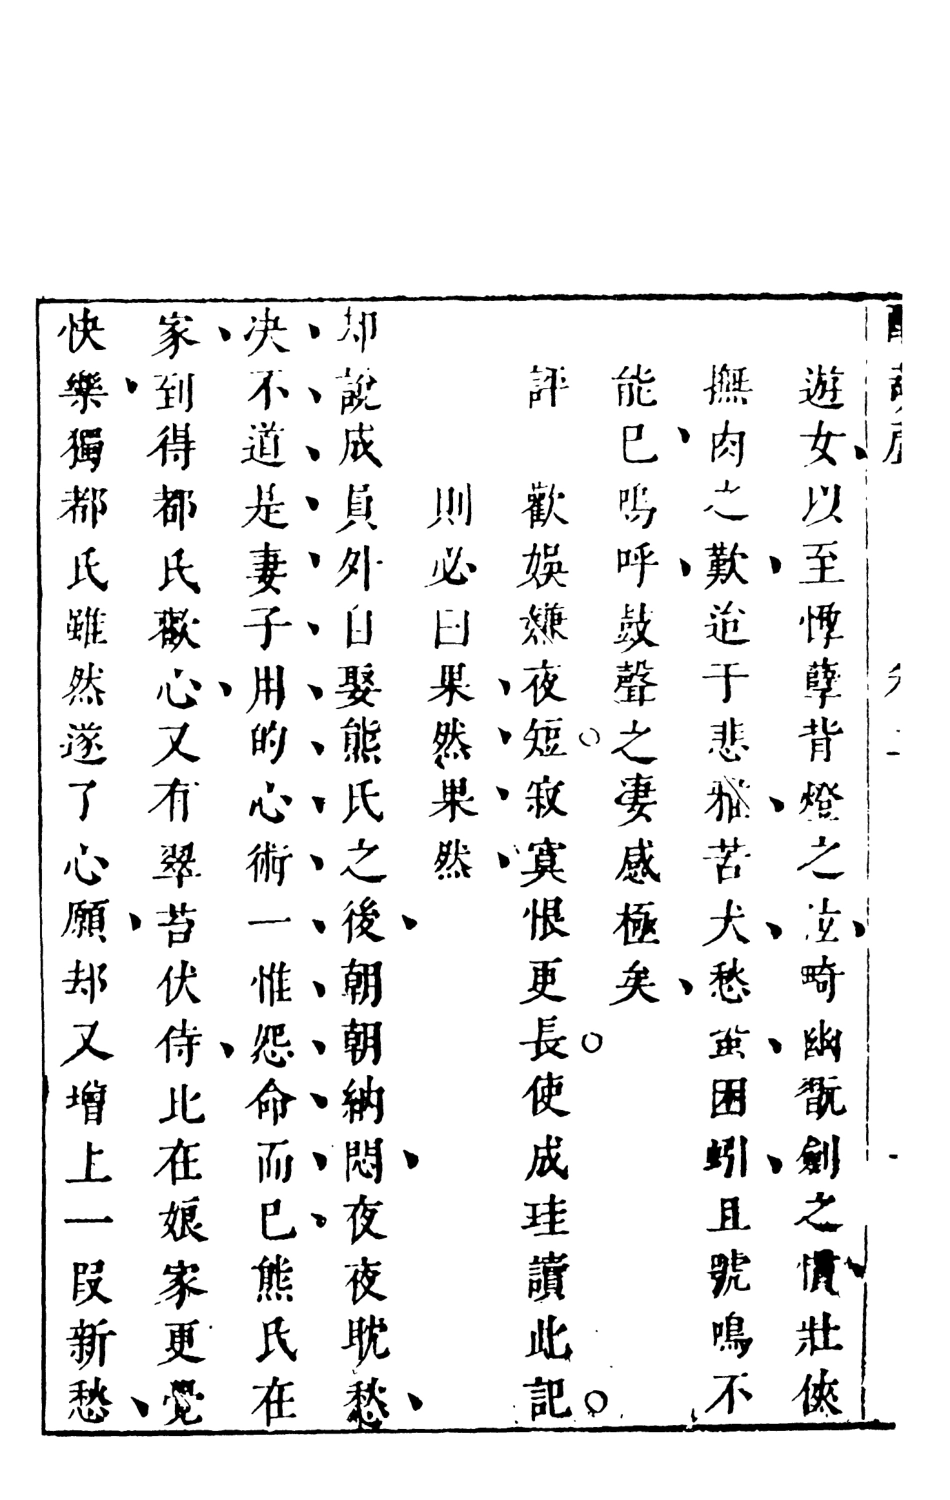 遊女以至悸孽背燈之泣畸幽翫劍之憤壯俠
撫肉之歎迨于悲雅苦犬愁蛍困蚓且號鳴不
能已嗚呼鼓聲之妻感極矣
評　歡娛嫌夜短寂寞恨更長使成珪讀此記
則必曰果然果然
却說成員外自娶熊氏之後朝朝納悶夜夜耽愁
决不道是妻子用的心術一惟怨命而已熊氏在
家到得都氏歡心又有翠苔伏侍比在娘家更覺
快樂獨都氏雖然遂了心願却又增上一段新愁